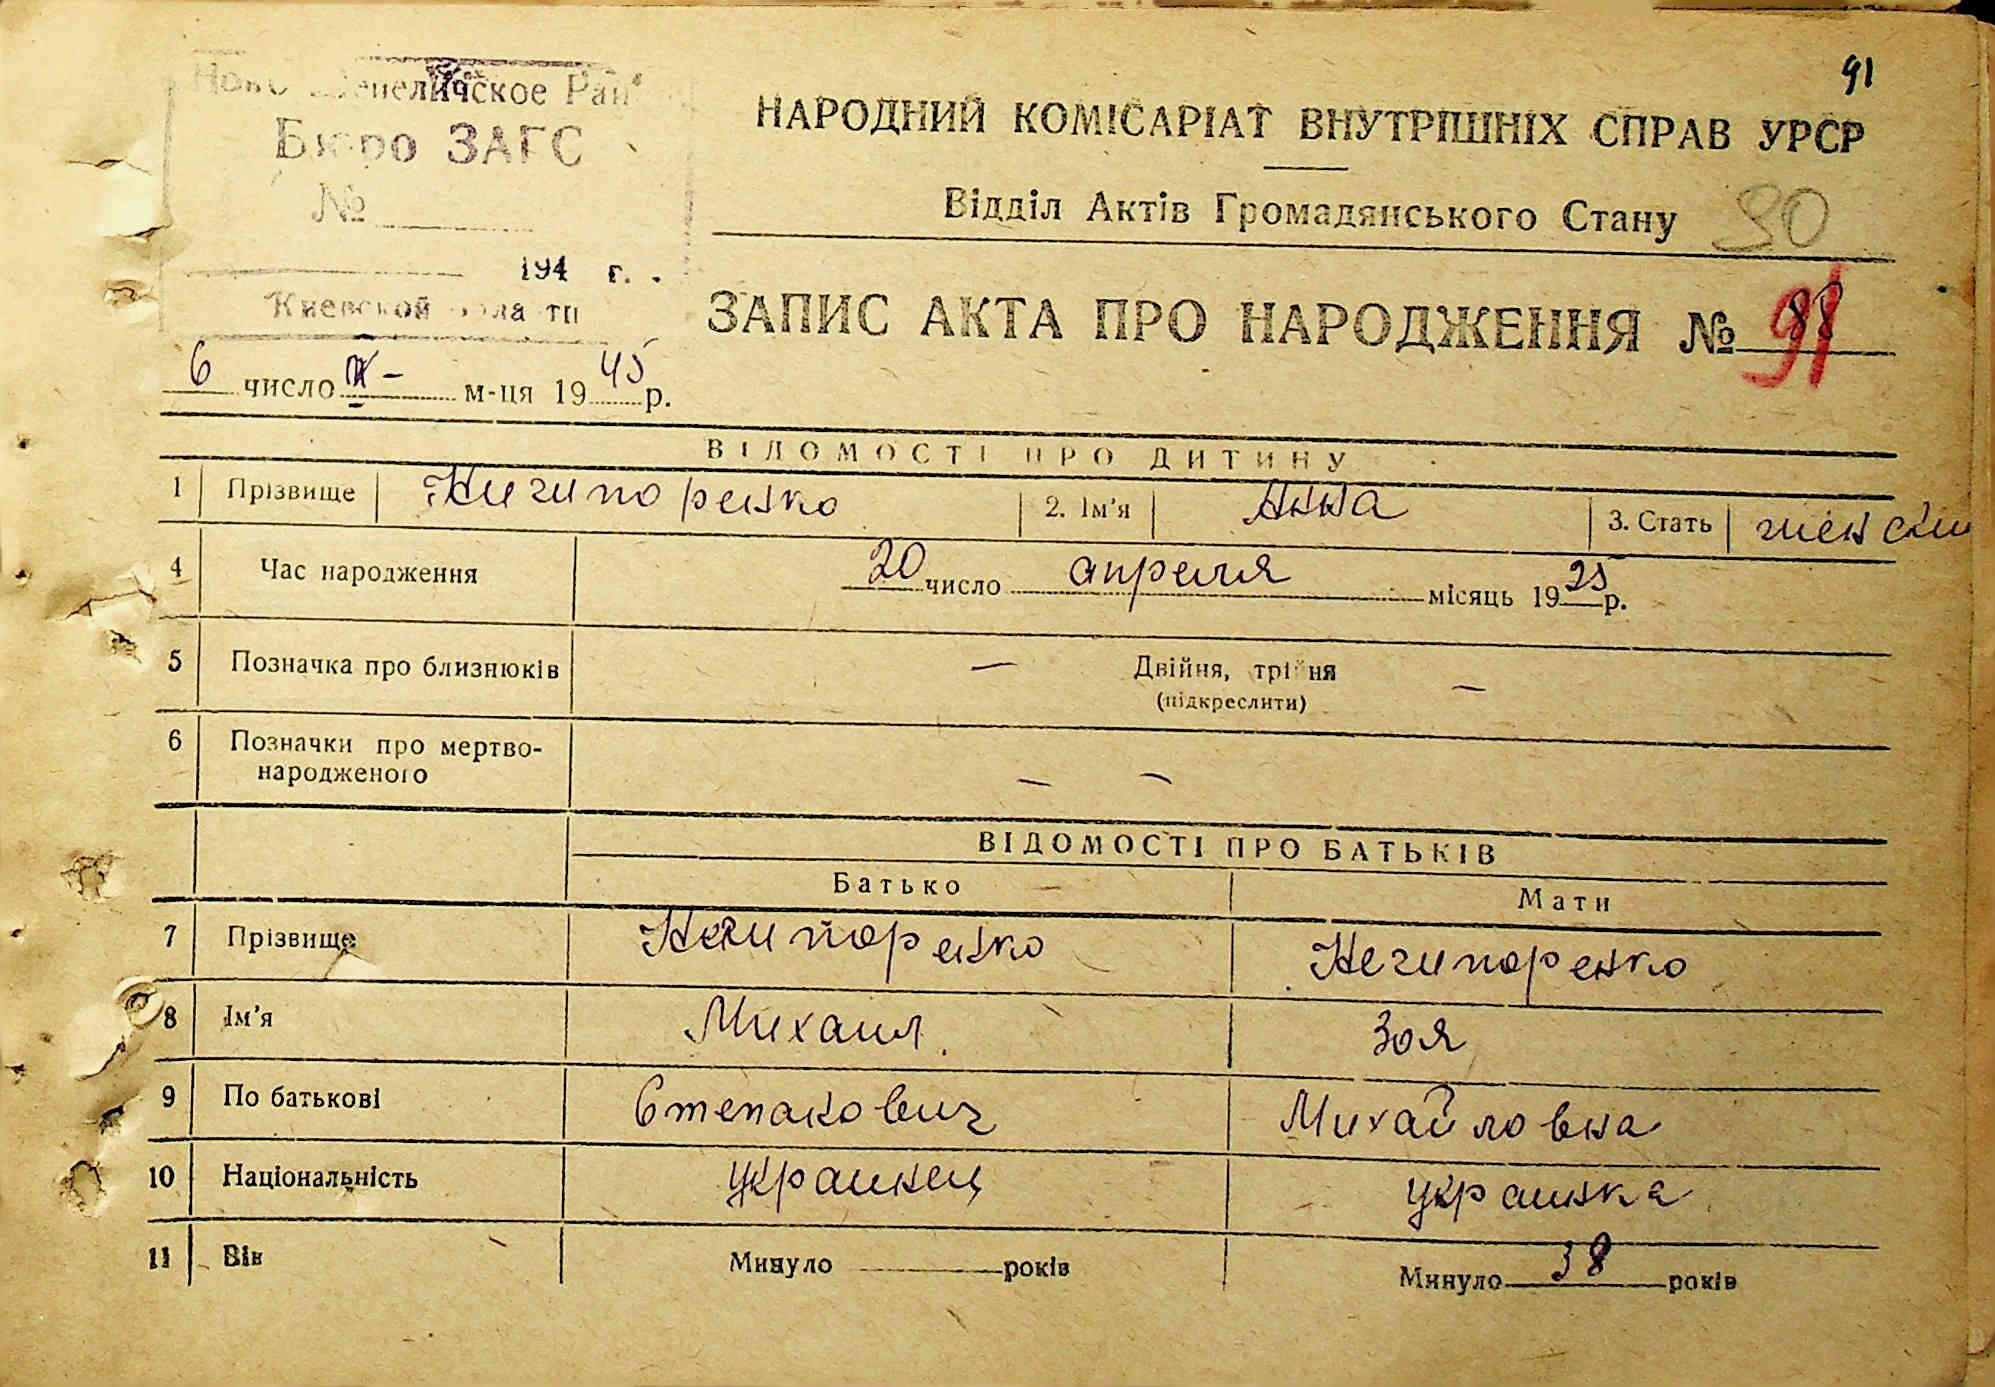 91
Бюро ЗАГС
№
194 г.
Киевской области
НАРОДНИЙ КОМІСАРІАТ ВНУТРІШНІХ СПРАВ УРСР
Відділ Актів Громадянського Стану 90
ЗАПИС АКТА ПРО НАРОДЖЕННЯ № 88 91
6 число м-ця 1945 р.
ВІДОМОСТІ ПРО ДИТИНУ
1 Прізвище Ничипоренко 2. Ім'я Анна 3. Стать женский
4 Час народження 20 число апреля місяць 1925 р.
5 Позначка про близнюків — Двійня, трійня —
(підкреслити)
6 Позначки про мертво-
народженого — —
ВІДОМОСТІ ПРО БАТЬКІВ
Батько Мати
7 Прізвище Нечипоренко Нечипоренко
8 Ім'я Михаил Зоя
9 По батькові Степанович Михайловна
10 Національність украинец украинка
11 Вік Минуло років Минуло 38 років